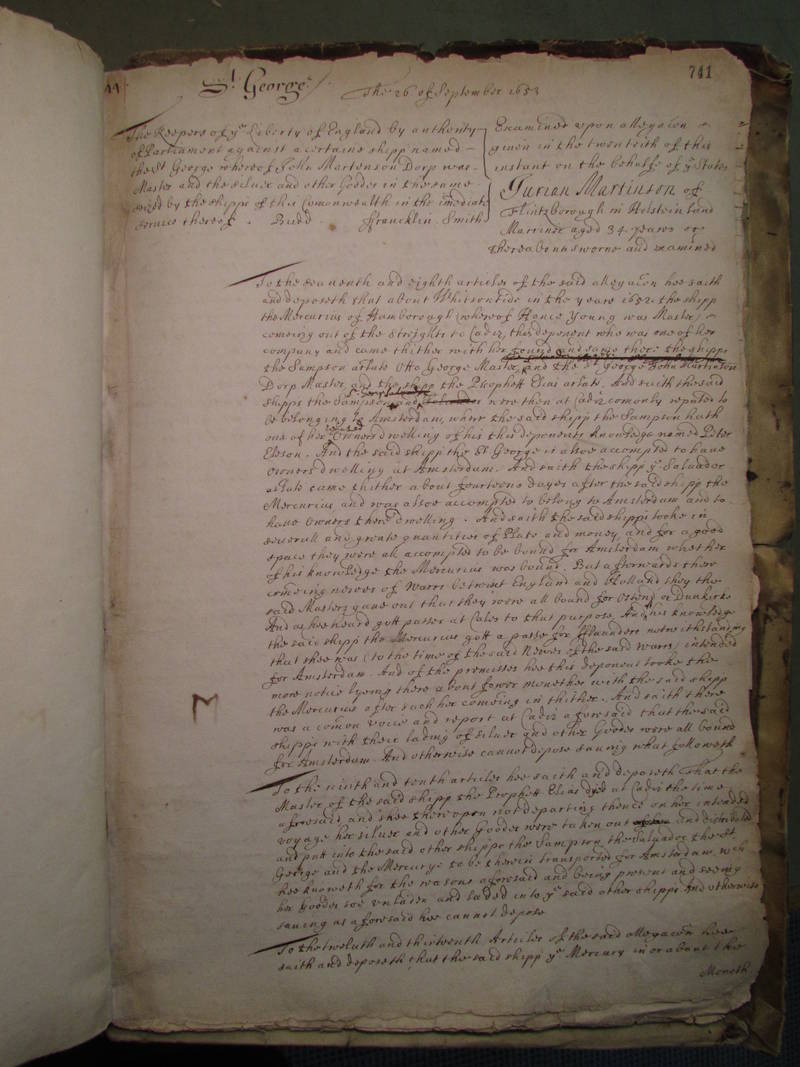 741
St. George./
The 26 of September 1653
The Keepers of ye Liberty of England by authority
of Parliament against a certaine shipp named
the St George whereof John Martenson Dorp was
Master and the silver and other Goods in the same
seized by the shipps of this Comonwealth in the imediate
service thereof. Budd. ffrancklin Smith
Examined upon allegacon
given in the twentith of this
instant on the behalfe of ye State
Jurian Martinson of
Flintzborough in Holstein land
Marriner aged 34 yeares or
thereabouts sworne and examined
To the seaventh and eighth articles of the said allegacon hee saith
and deposeth that about Whitsontide in the yeare 1652 the shipp
the Mercurius of Hamborough (whereof Hance Young was Master)
comeing out of the Streights to Cadiz, this deponent who was one of her
company and came thither with her found and sawe there the shipps
the Sampson arlate Otto George Master, and the St George John Martinson
Dorp Master, and the shipp the Prophett Elias arlate. And saith the said
shipps the Sampson and St George were then at Cadiz comonly reputed to
be belonging to Amsterdam, where the said shipp the Sampson hath
one of her Owners dwelling of his this deponents knowledge named Peter
Eleson. And the said shipp the St George is alsoe accompted to have
Owners dwelling at Amsterdam. And saith the shipp ye Salvador
arlate came thither about fourteene dayes after the said shipp the
Mercurius and was alsoe accompted to belong to Amsterdam and to
have Owners there dwelling. And saith the said shipps tooke in
severall and greate quantities of Plate and money, and for a good
space they were all accompted to be bound for Amsterdam whether
of his knowledge the Mercurius was bound. But afterwards there
comeing newes of Warrs betwixt England and Holland they the
said Masters gave out that they were all bound for Ostend or Dunkirke
And as hee heard gott passes at Cales to that purpose. And of his knowledge
the said shipp the Mercurius gott a passe for fflaunders notwithstanding
that shee was (to the time of the said Newes of the said Warrs) intended
for Amsterdam. And of the premisses hee this deponent tooke the
more notice lyeing there about fower moneths with the said shipp
the Mercurius after such her comeing in thither. And saith there
was a comon voice and report at Cadiz aforesaid that the said
shipps with their lading of silver and other Goods were all bound
for Amsterdam. And otherwise cannot depose saving what followeth
To the nineth and tenth articles hee saith and deposeth That the
Master of the said shipp the Prophett Elias dyed at Cadiz the time
aforesaid and shee thereupon not departing thence on her intended
voyage her silver and other Goods were taken out and distributed
and putt into the said other shipps the Sampson, the Salvador the St.
George and the Mercury to be therein transported for Amsterdam. wch
hee knoweth for the reasons aforesaid and being present and seeing
her Goods soe unladen and laded into ye said other shipps And otherwise
saving as aforesaid hee cannot depose
To the twelvth and thirteenth Articles of the said allegacon hee
saith and deposeth that the said shipp ye Mercury in or about the
Moneth